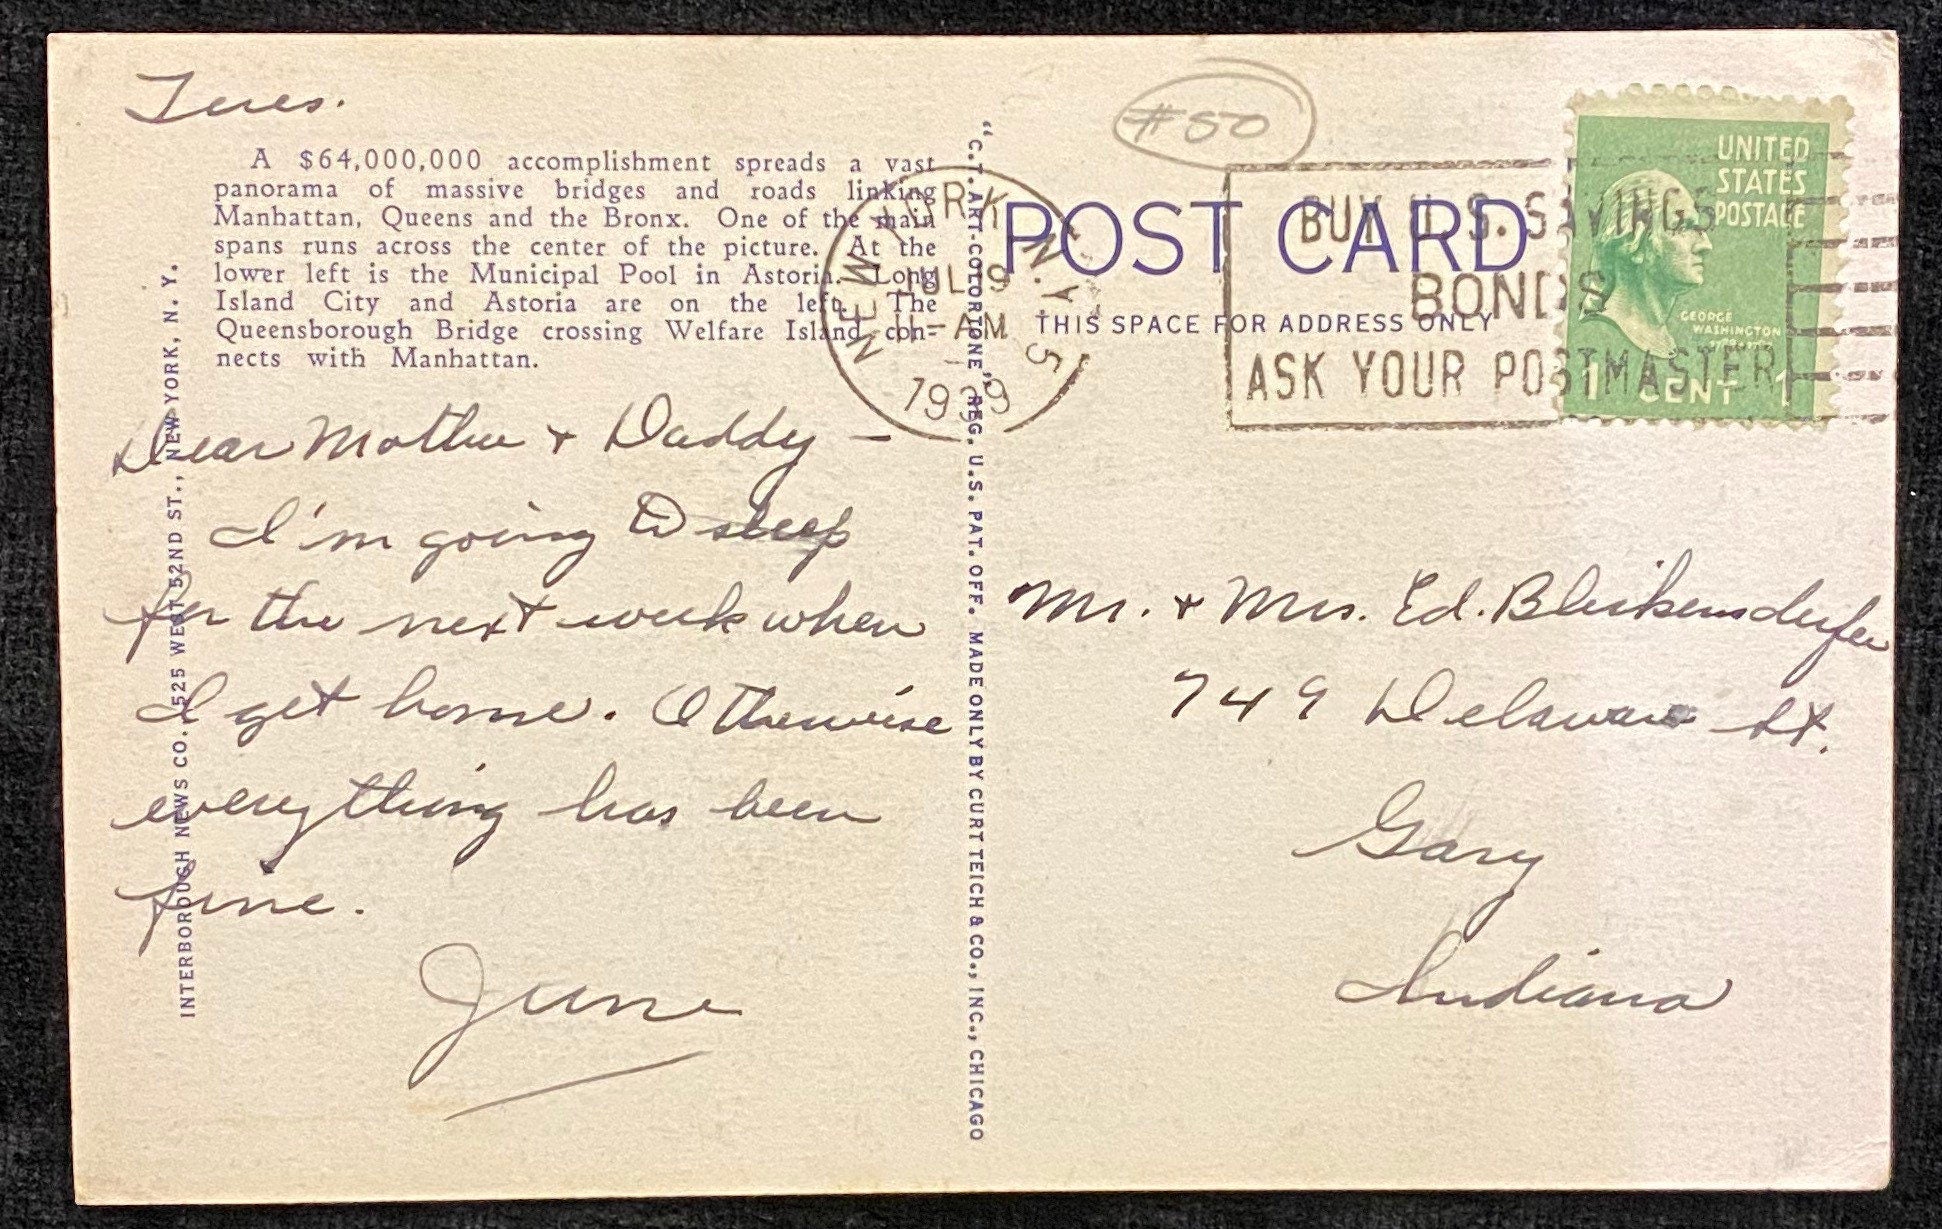 Tues.
A $64,000,000 accomplishment spreads a vast
panorama of massive bridges and roads linking
Manhattan, Queens and the Bronx. One of the main
spans runs across the center of the picture. At the
lower left is the Municipal Pool in Astoria. Long
Island City and Astoria are on the left. The
Queensborough Bridge crossing Welfare Island con-
nects with Manhattan.
Dear Mother + Daddy –
I'm going to sleep
for the next week when
I get home. Otherwise
everything has been
fine.
June
INTERBOROUGH NEWS CO. 525 WEST 52ND ST., NEW YORK, N. Y.
"C.T. ART-COLORTONE" REG. U.S. PAT. OFF. MADE ONLY BY CURT TEICH & CO., INC., CHICAGO
#50
POST CARD
THIS SPACE FOR ADDRESS ONLY
NEW YORK, N.Y. 5
JUL 9
AM
BUY U.S. SAVINGS
BONDS
ASK YOUR POSTMASTER
UNITED
STATES
POSTAGE
GEORGE
WASHINGTON
1 CENT 1
Mr. + Mrs. Ed. Bleikensderfer
749 Delaware St.
Gary
Indiana